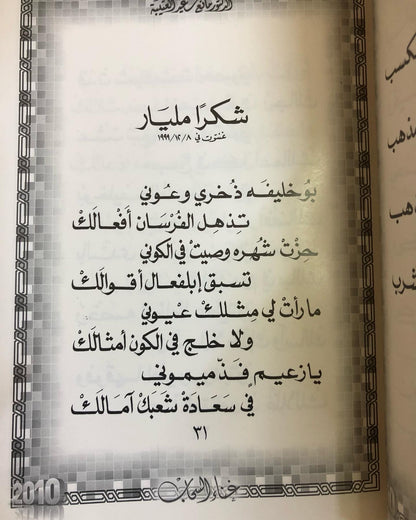 الدكتور مانع سعيد العتيبة
شكرًا مليار
غنتوت في ١٩٩٩/١٢/٨
بو خليفه ذخري وعوني
تذهل الفرسان أفعالك
حزت شهره وصيت في الكوني
تسبق إبلفعال أقوالك
ما رأت لي مثلك عيوني
ولا خلج في الكون أمثالك
يا زعيم فذ ميموني
في سعادة شعبك آمالك
٣١
غناء السحاب
2010
كسب
ذهب
وهب
شرب